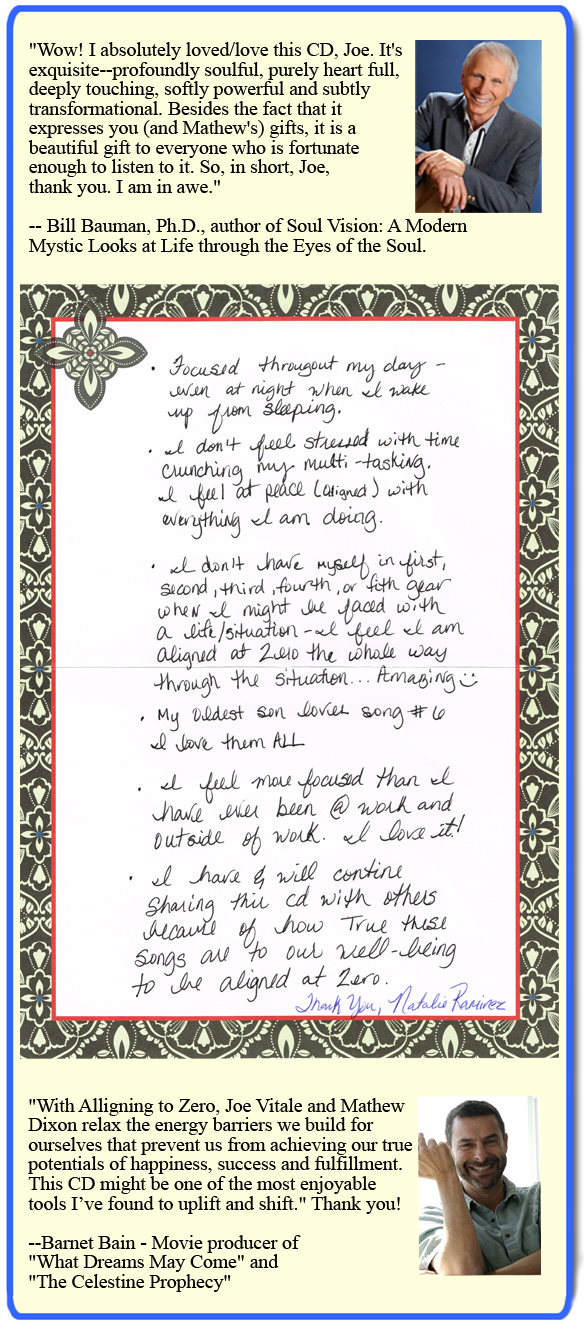 "Wow! I absolutely loved/love this CD, Joe. It's
exquisite--profoundly soulful, purely heart full,
deeply touching, softly powerful and subtly
transformational. Besides the fact that it
expresses you (and Mathew's) gifts, it is a
beautiful gift to everyone who is fortunate
enough to listen to it. So, in short, Joe,
thank you. I am in awe."
-- Bill Bauman, Ph.D., author of Soul Vision: A Modern
Mystic Looks at Life through the Eyes of the Soul.
• Focused througout my day -
even at night when I wake
up from sleeping.
• I don't feel stressed with time
crunching my multi-tasking.
I feel at peace (aligned) with
everything I am doing.
• I don't have myself in first,
second, third, fourth, or fith gear
when I might be faced with
a life/situation - I feel I am
aligned at Zero the whole way
through the situation... Amazing☺
• My oldest son loves song #6
I love them ALL
• I feel more focused than I
have ever been @ work and
outside of work. I love it!
• I have & will contine
sharing this cd with others
because of how True these
songs are to our well-being
to be aligned at Zero.
Thank You, Natalie Ramirez
"With Alligning to Zero, Joe Vitale and Mathew
Dixon relax the energy barriers we build for
ourselves that prevent us from achieving our true
potentials of happiness, success and fulfillment.
This CD might be one of the most enjoyable
tools I’ve found to uplift and shift." Thank you!
--Barnet Bain - Movie producer of
"What Dreams May Come" and
"The Celestine Prophecy"